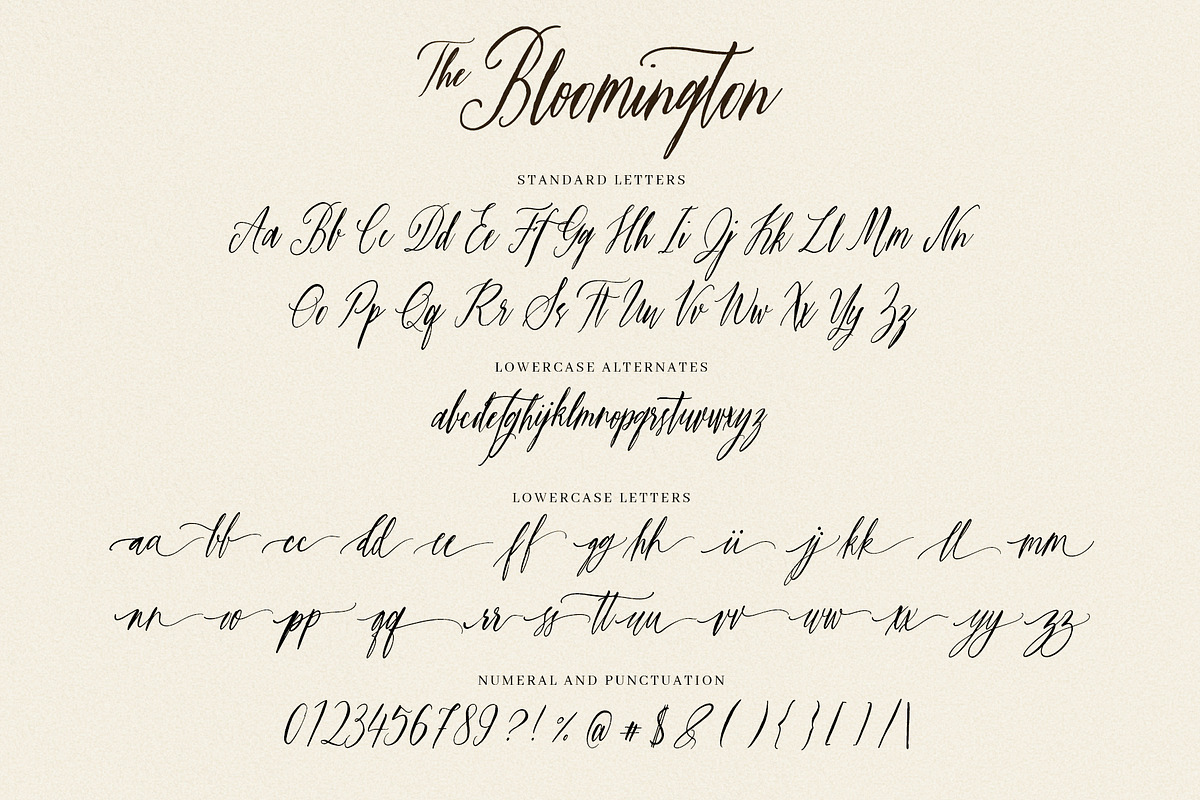 The Bloomington
STANDARD LETTERS
Aa Bb Cc Dd Ee Ff Gg Hh Ii Jj Kk Ll Mm Nn
Oo Pp Qq Rr Ss Tt Uu Vv Ww Xx Yy Zz
LOWERCASE ALTERNATES
abcdefghijklmnopqrstuvwxyz
LOWERCASE LETTERS
aa bb cc dd ee ff gg hh ii jj kk ll mm
nn oo pp qq rr ss tt uu vv ww xx yy zz
NUMERAL AND PUNCTUATION
0123456789 ? ! % @ # $ & ( ) { } [ ] / |